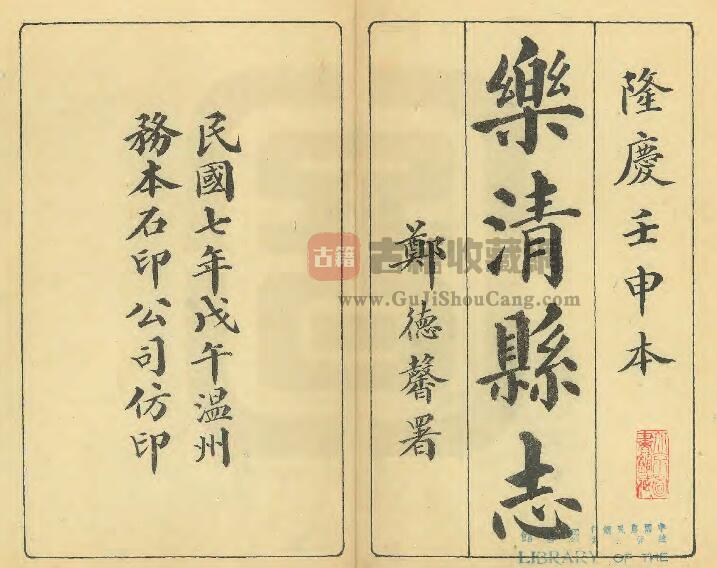 隆慶壬申本
樂清縣志
鄭德馨署
民國七年戊午溫州
務本石印公司仿印
古籍
古籍收藏網
www.GuJiShouCang.com
LIBRARY OF THE